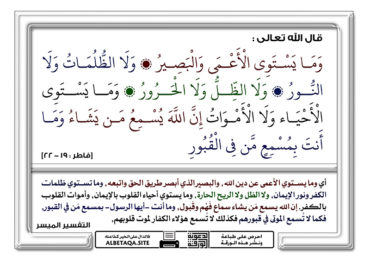 قال الله تعالى :
وَمَا يَسْتَوِي الْأَعْمَى وَالْبَصِيرُ ۞ وَلَا الظُّلُمَاتُ وَلَا
النُّورُ ۞ وَلَا الظِّلُّ وَلَا الْحَرُورُ ۞ وَمَا يَسْتَوِي
الْأَحْيَاء وَلَا الْأَمْوَاتُ إِنَّ اللَّهَ يُسْمِعُ مَن يَشَاءُ وَمَا
أَنتَ بِمُسْمِعٍ مَّن فِي الْقُبُورِ
[فاطر : ١٩ - ٢٢]
أي وما يستوي الأعمى عن دين الله, والبصير الذي أبصر طريق الحق واتبعه, وما تستوي ظلمات
الكفر ونور الإيمان, ولا الظل ولا الريح الحارة, وما يستوي أحياء القلوب بالإيمان, وأموات القلوب
بالكفر. إن الله يسمع مَن يشاء سماع فَهْم وقَبول, وما أنت -أيها الرسول- بمسمع مَن في القبور,
فكما لا تُسمع الموتى في قبورهم فكذلك لا تُسمع هؤلاء الكفار لموت قلوبهم.
التفسير الميسر
احرص على طباعة
ونشر هذه الورقة
ورقة
ALBETAQA.SITE